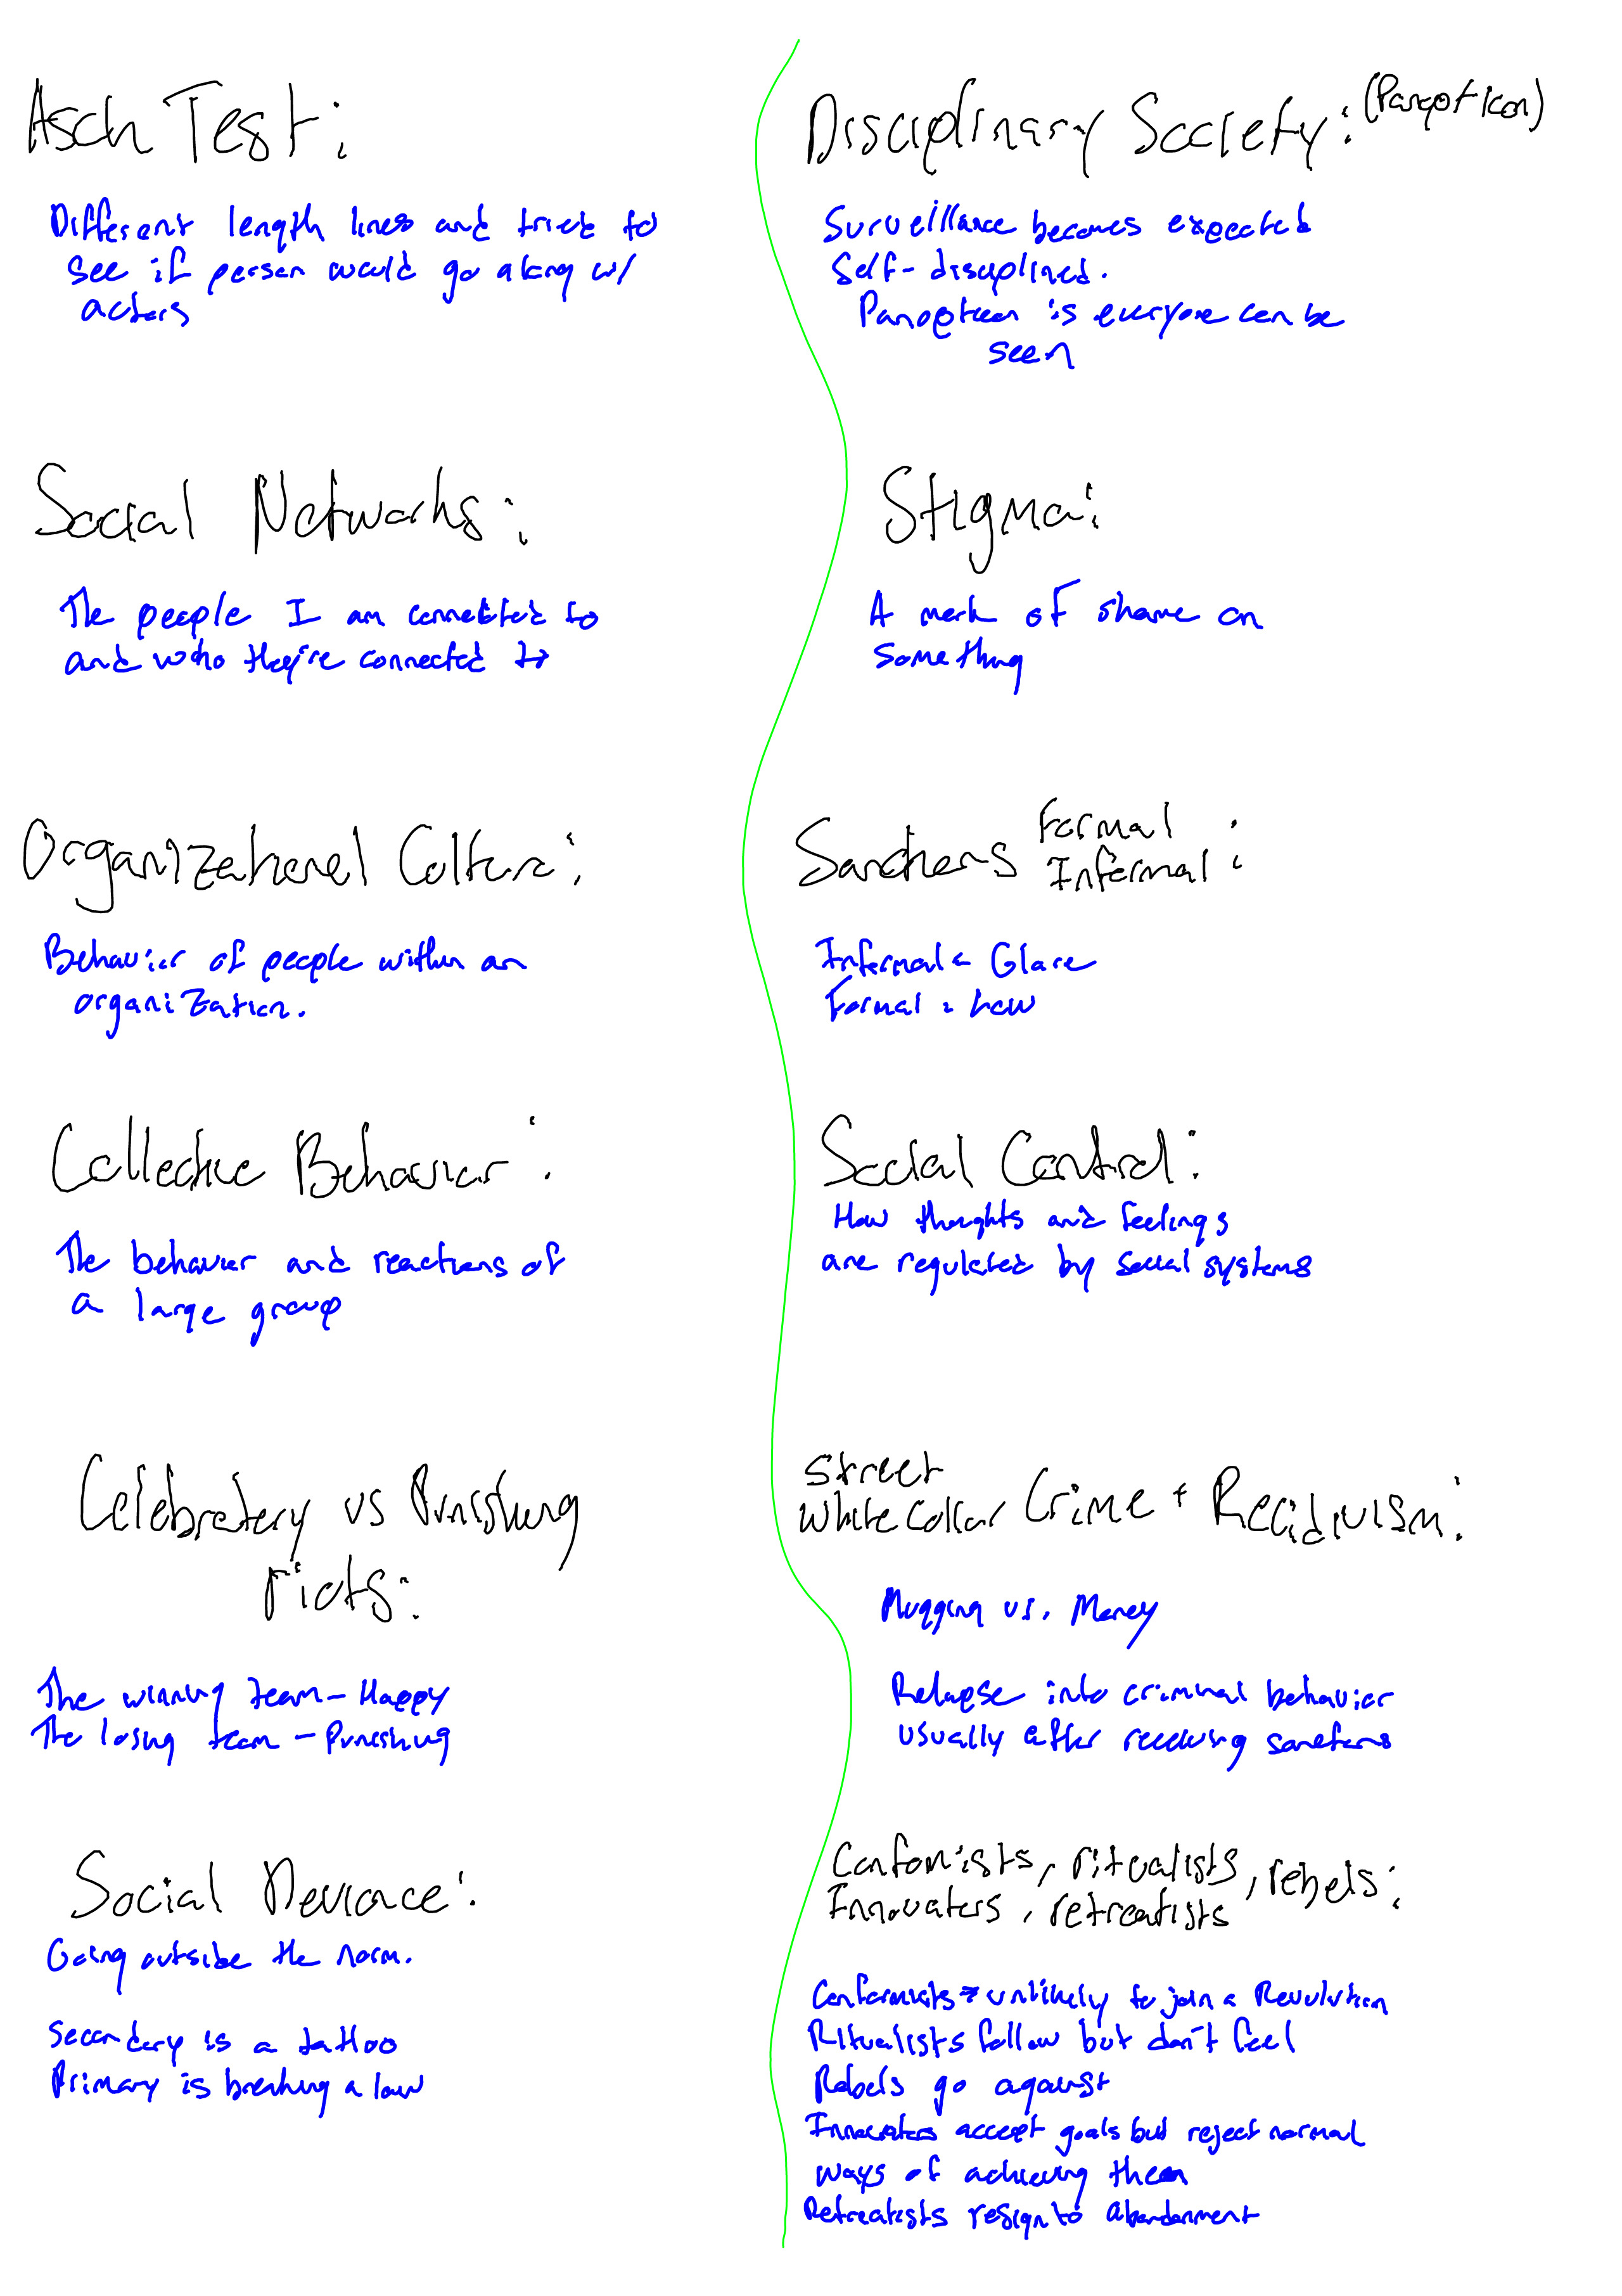 Asch Test:
Different length lines and tried to
see if person would go along w/
actors
Social Networks:
The people I am connected to
and who they're connected to
Organizational Culture:
Behavior of people within an
organization.
Collective Behavior:
The behavior and reactions of
a large group
Celebratory vs Punishing
riots:
The winning team - Happy
The losing team - Punishing
Social Deviance:
Going outside the norm.
Secondary is a tattoo
Primary is breaking a law
Disciplinary Society: (Panopticon)
Surveillance becomes expected
Self-disciplined.
Panopticon is everyone can be
seen
Stigma:
A mark of shame on
something
Sanctions Formal
Informal:
Informal = Glare
Formal = Law
Social Control:
How thoughts and feelings
are regulated by social systems
Street
White Collar Crime + Recidivism:
Mugging vs. Money
Relapse into criminal behavior
usually after receiving sanctions
Conformists, ritualists, rebels:
Innovators, retreatists
Conformists → unlikely to join a Revolution
Ritualists follow but don't feel
Rebels go against
Innovators accept goals but reject normal
ways of achieving them
Retreatists resign to abandonment